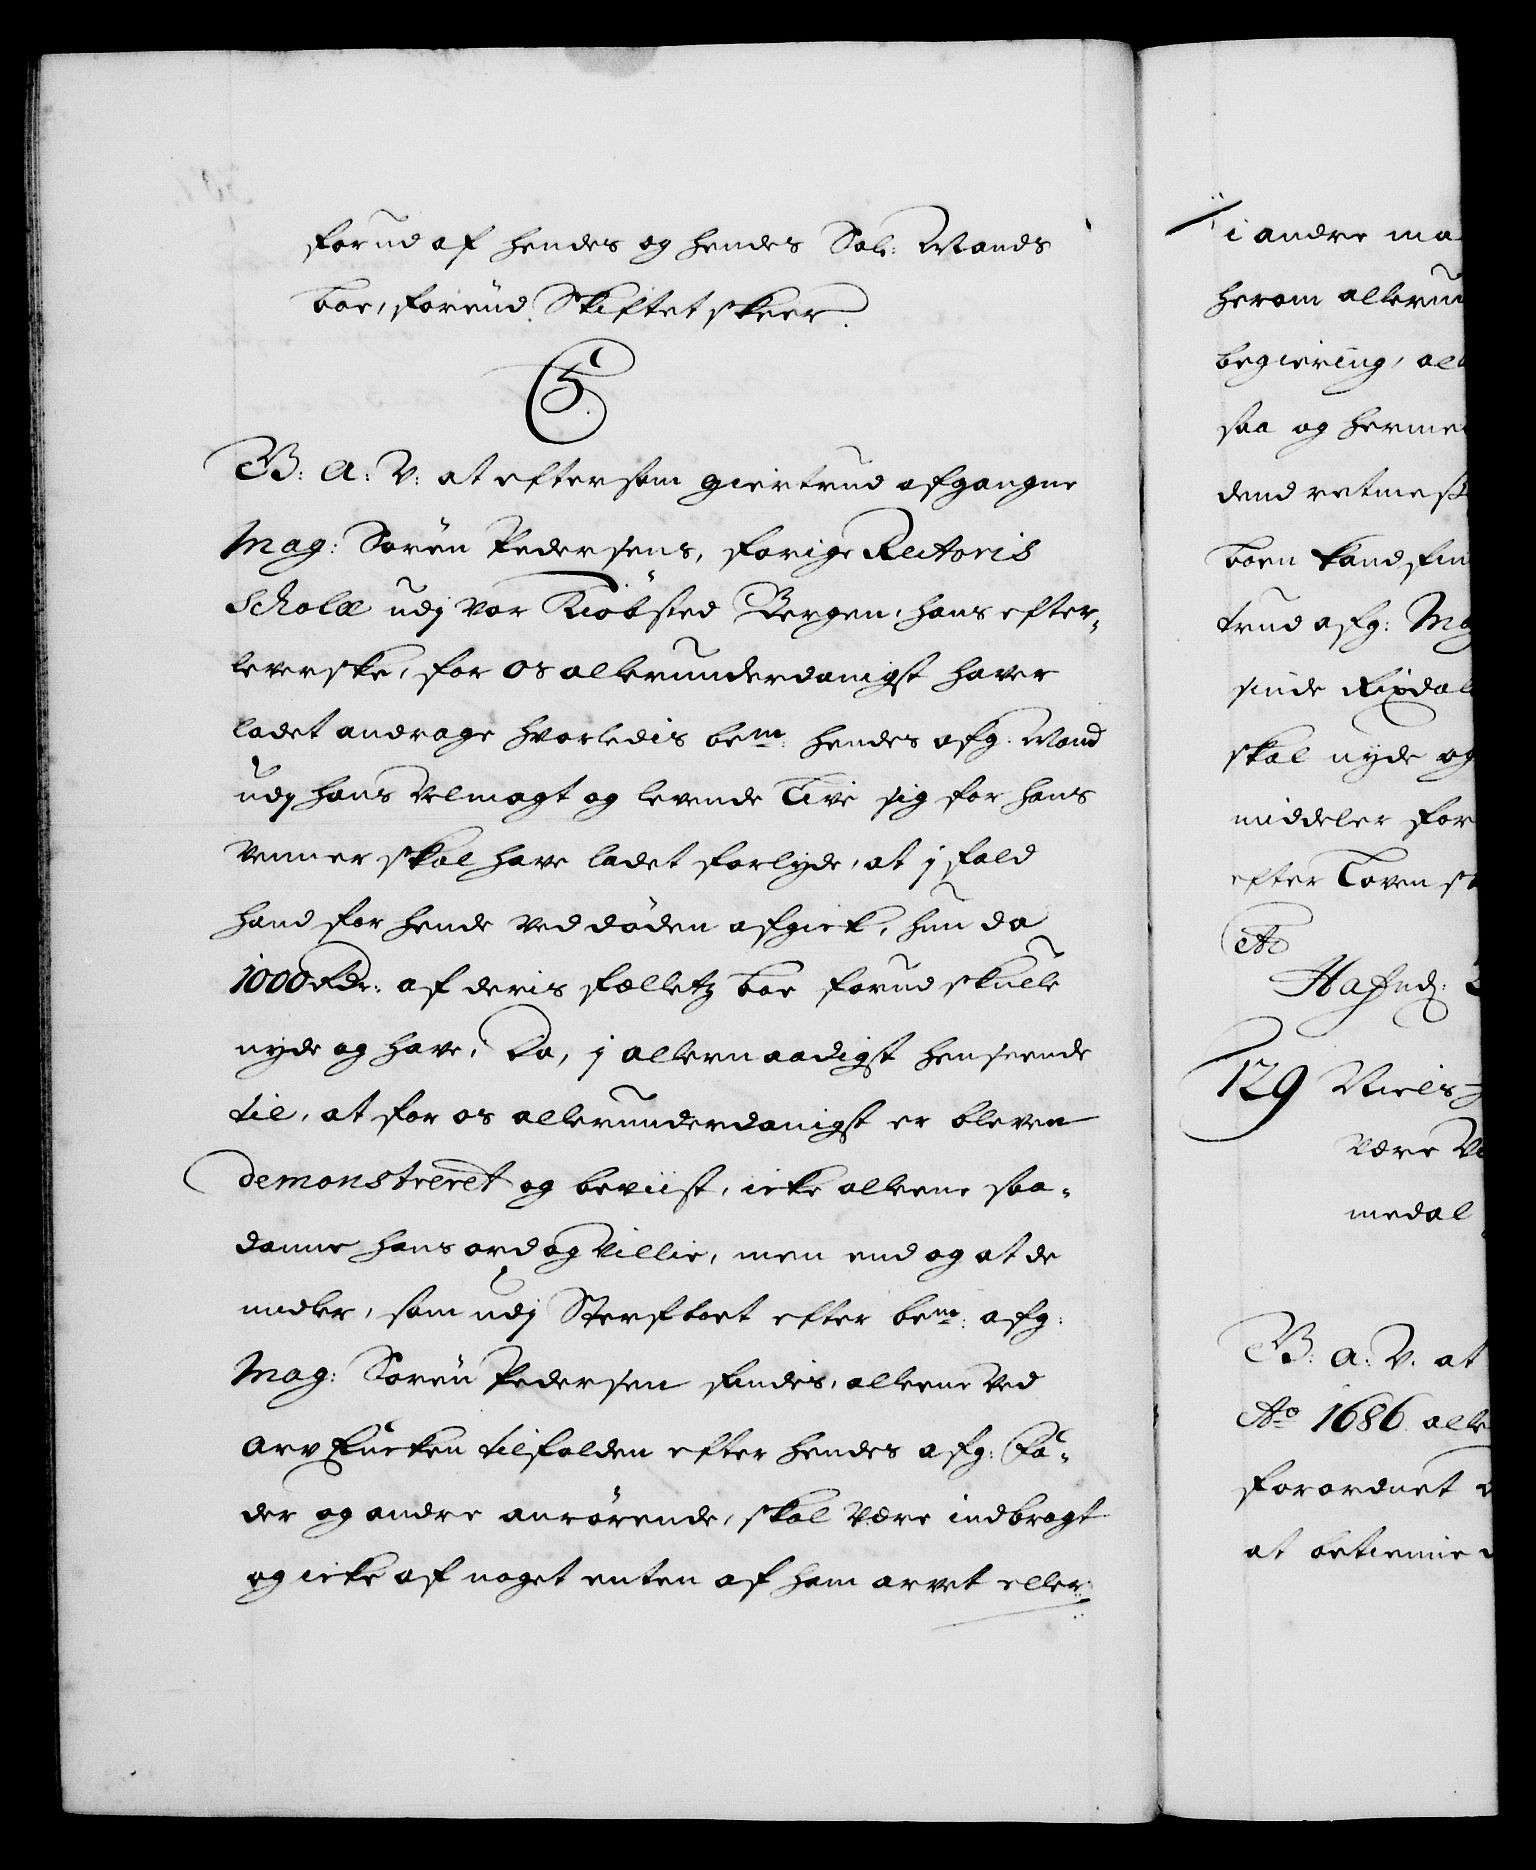 forud af hendes og hendes Sal: Mands
boe, forend Skiftet skeer.
C5.
B: A: V: at eftersom giertrud afgangne
Mag: Sören Pedersens, forige Rectoris
Scholæ udj vor Kiöbsted Bergen, hans efter-
leverske, for os allerunderdanigst haver
ladet andrage hvorledis bem: hendes afg: Mand
udj hans velmagt og levende Live sig for hans
venner skal have ladet forlyde, at j fald
hand for hende ved döden afgick, hun da
1000 Rdr: af deris fælletz boe forud skulle
nyde og have, Da, j allernaadigst henseende
til, at for os allerunderdanigst er bleven
demonstreret og beviist, icke alleene saa-
danne hans ord og Villie, men end og at de
midler, som udj Sterfboet efter bem: afg:
Mag: Sören Pedersen findis, alleene ved
Arv lücken tilfalden efter hendes afg: Fa-
der og andre anrörende, skal være indbragt
og icke af noget enten af ham arvet eller
i andre ma
herom allerun
begiering, all
saa og herme
dend retmess
boen kand fin
trud afg: Mag
sinde Rixdal
skal nyde og
middeler for
efter Loven s
Hafnd:
129 Niels
være V
medal
B: A: V: at
Ao 1686 alle
forordnet
at betienne